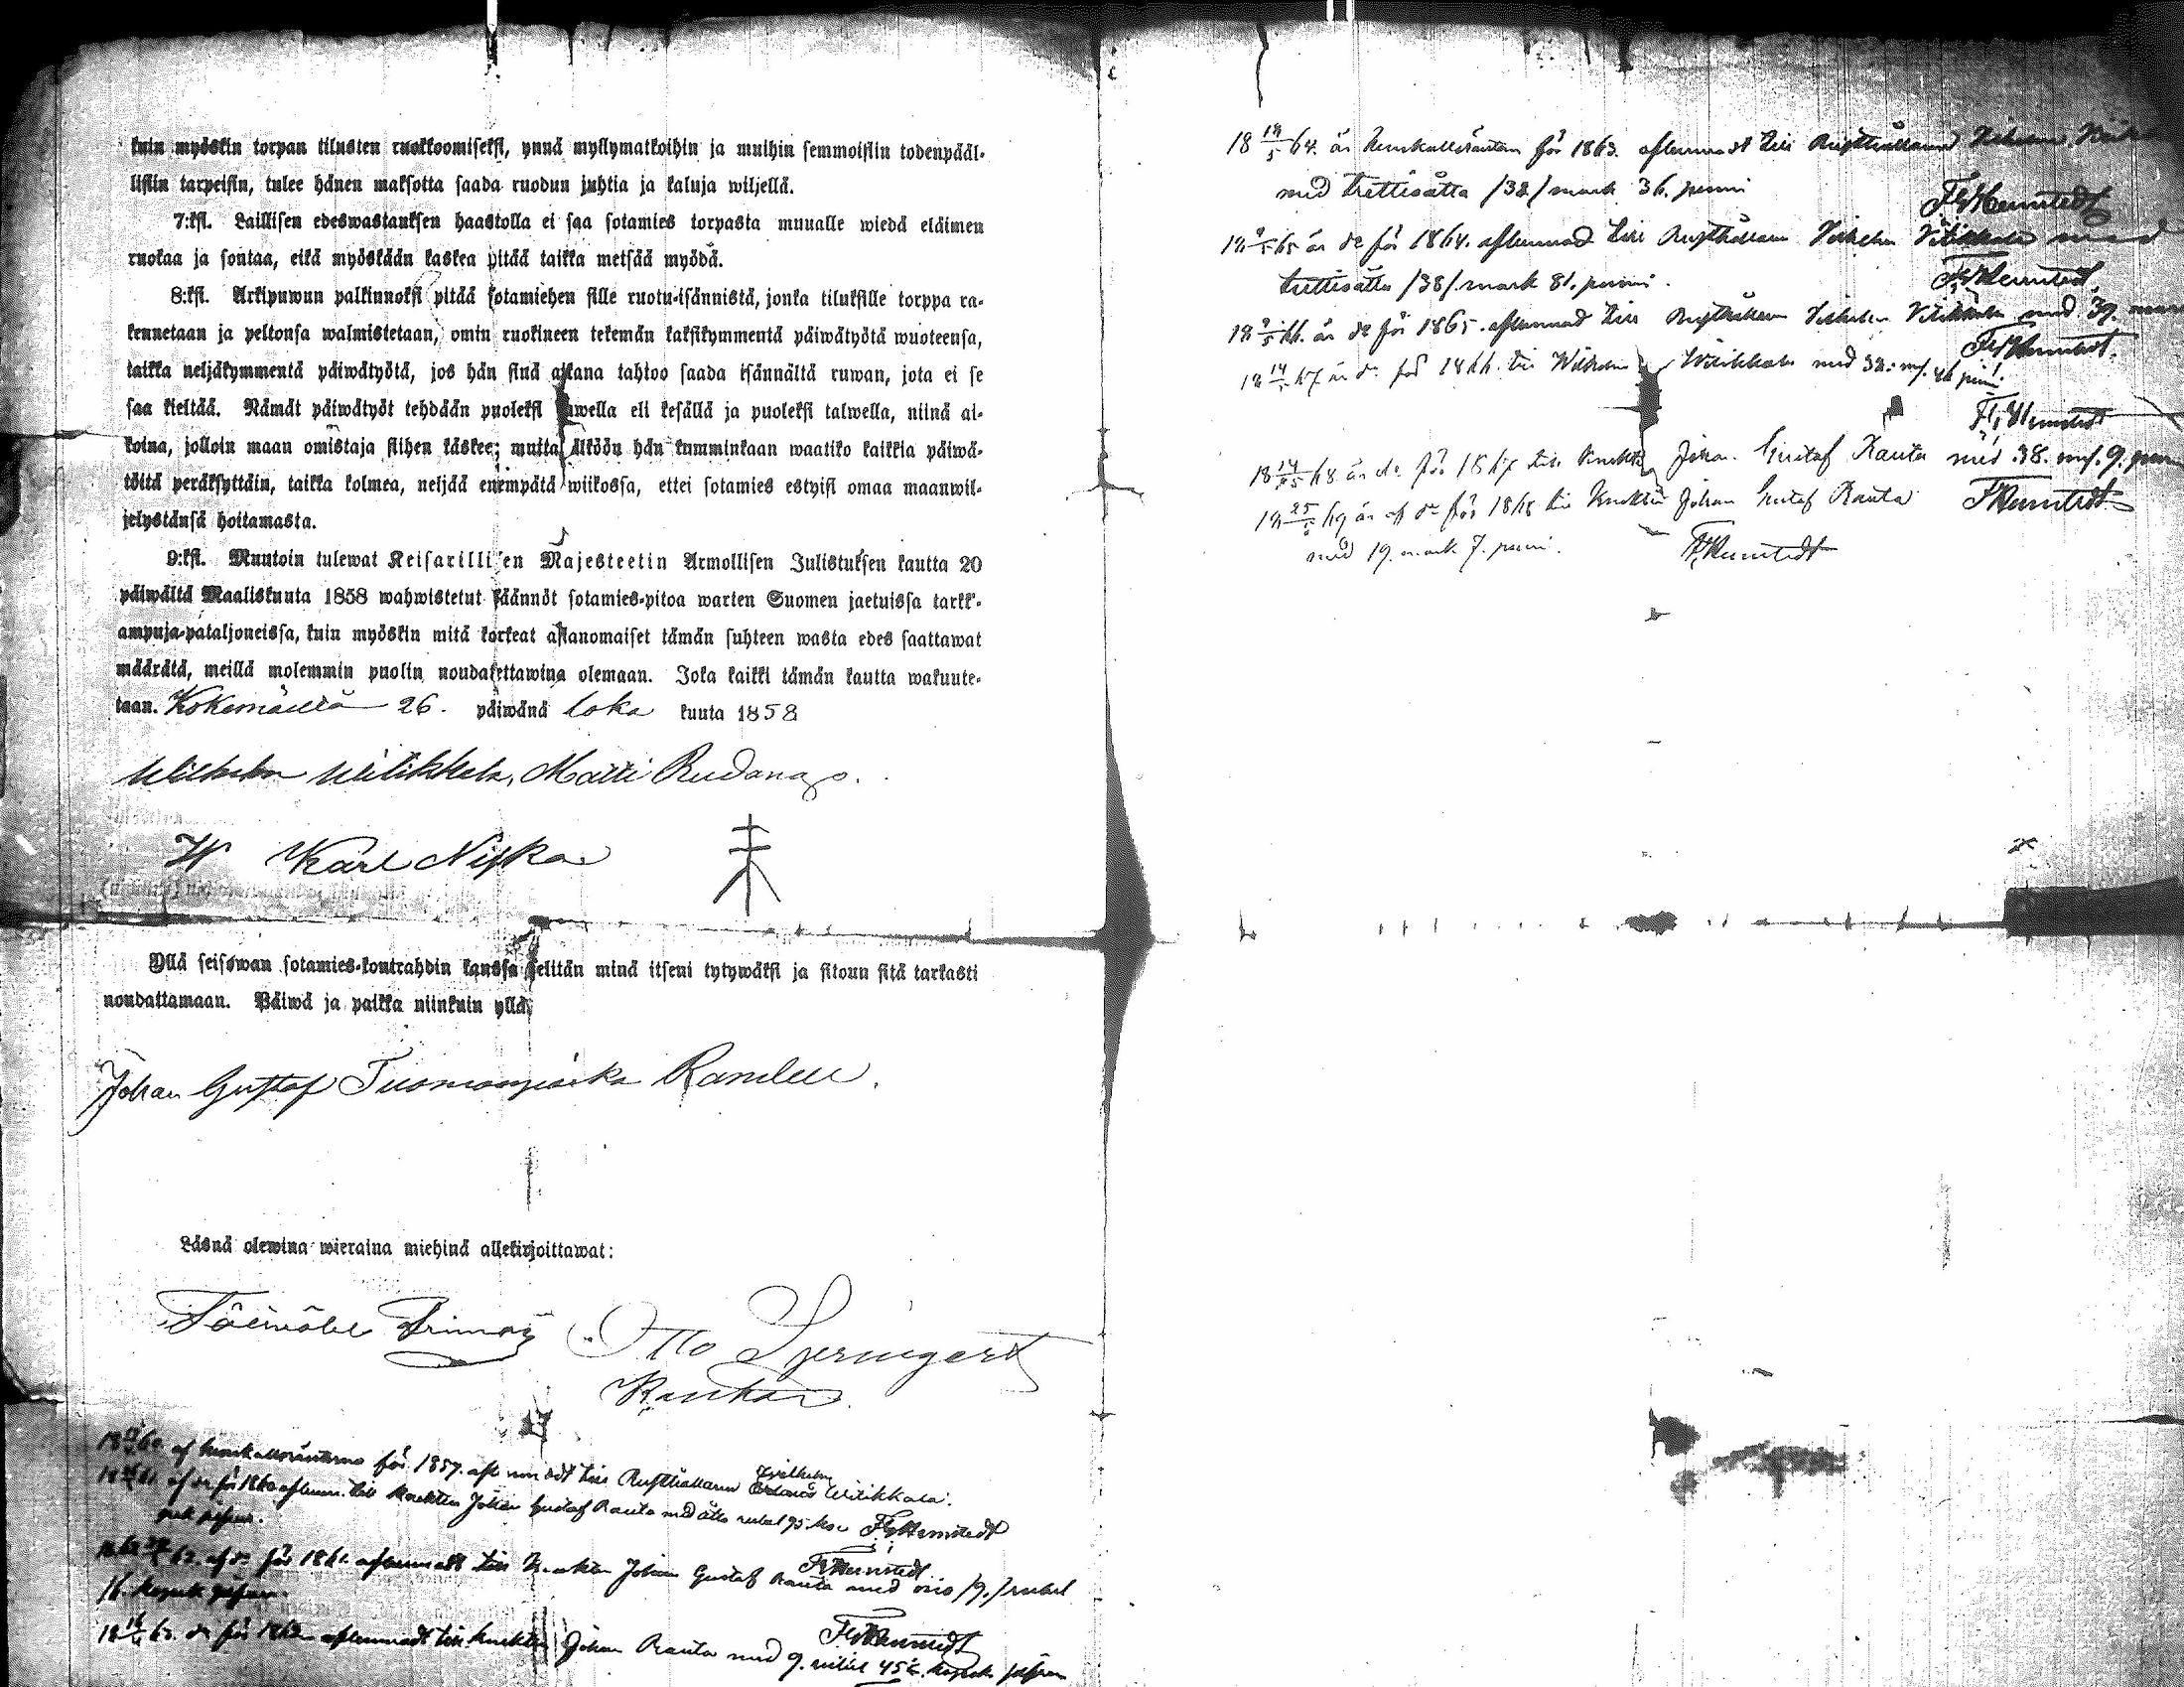 kuin myöskin torpan tilusten ruokkoomiseksi, ynnä myllymatkoihin ja muihin semmoisiin todenpääl-
lisiin tarpeisin, tulee hänen maksotta saada ruodun juhtia ja kaluja wiljellä.
7:ksi. Laillisen edeswastauksen haastolla ei saa sotamies torpasta muualle wiedä eläimen
ruokaa ja sontaa, eikä myöskään kaskea pitää taikka metsää myödä.
8:ksi. Arkipuwun palkinnoksi pitää sotamiehen sille ruotu-isännistä, jonka tiluksille torppa ra-
kennetaan ja peltonsa walmistetaan, omin ruokineen tekemän kaksikymmentä päiwätyötä wuoteensa,
taikka neljäkymmentä päiwätyötä, jos hän sinä aikana tahtoo saada isännältä ruwan, jota ei se
saa kieltää. Nämät päiwätyöt tehdään puoleksi suwella eli kesällä ja puoleksi talwella, niinä ai-
koina, jolloin maan omistaja siihen käskee; mutta älköön hän kumminkaan waatiko kaikkia päiwä-
töitä peräksyttäin, taikka kolmea, neljää enempätä wiikossa, ettei sotamies estyisi omaa maanwil-
jelystänsä hoitamasta.
9:ksi. Muutoin tulewat Keisarillisen Majesteetin Armollisen Julistuksen kautta 20
päiwältä Maaliskuuta 1858 wahwistetut säännöt sotamies-pitoa warten Suomen jaetuissa tarkk'-
ampuja-pataljoneissa, kuin myöskin mitä korkeat asianomaiset tämän suhteen wasta edes saattawat
määrätä, meillä molemmin puolin noudatettawina olemaan. Joka kaikki tämän kautta wakuute-
taan. Kokemäellä 26. päiwänä loka kuuta 1858
Wilhelm Witikkala, Matti
Karl Niska
Yllä seisowan sotamies-kontrahdin kanssa selitän minä itseni tytywäksi ja sitoun sitä tarkasti
noudattamaan. Päiwä ja paikka niinkuin yllä.
Johan Gustaf
Läsnä olewina wieraina miehinä allekirjoittawat:
Otto
af för 1857. till Rusthållaren Wilhelm Witikkala.
af do för 1860 till Knekten Johan Gustaf Rauta med åtta rubel 95. kop. F. Hemstedt
af do för 1861 till Knekten Johan Gustaf Rauta med nio /9./ rubel
16. kopek F. Hemstedt
18 63. do för 1862 till Knekten Johan Rauta med 9. rubel 45 kopek
F. Hemstedt
18 64. är för 1863. aflemnadt till Rusthållaren Vilhelm
med trettiåtta /38/ mark 36. penni F. Hemstedt
65 är do för 1864. aflemnad till Rusthållaren Vilhelm Vitikkala med
trettiåtta /38/ mark 81. penni. F. Hemstedt.
66. är do för 1865. aflemnad till Rusthållaren Vilhelm Vitikkala med 39. mark
F. Hemstedt.
67 är do för 1866. till Wilhelm Witikkala med 38. mk. 46 penni.
F. Hemstedt
68 är do för 1867 till Knekten Johan Gustaf Rauta med 38. mk. 9. penni
69 är af do för 1868 till Knekten Johan Gustaf Rauta F. Hemstedt
med 19. mark 7. penni. F. Hemstedt